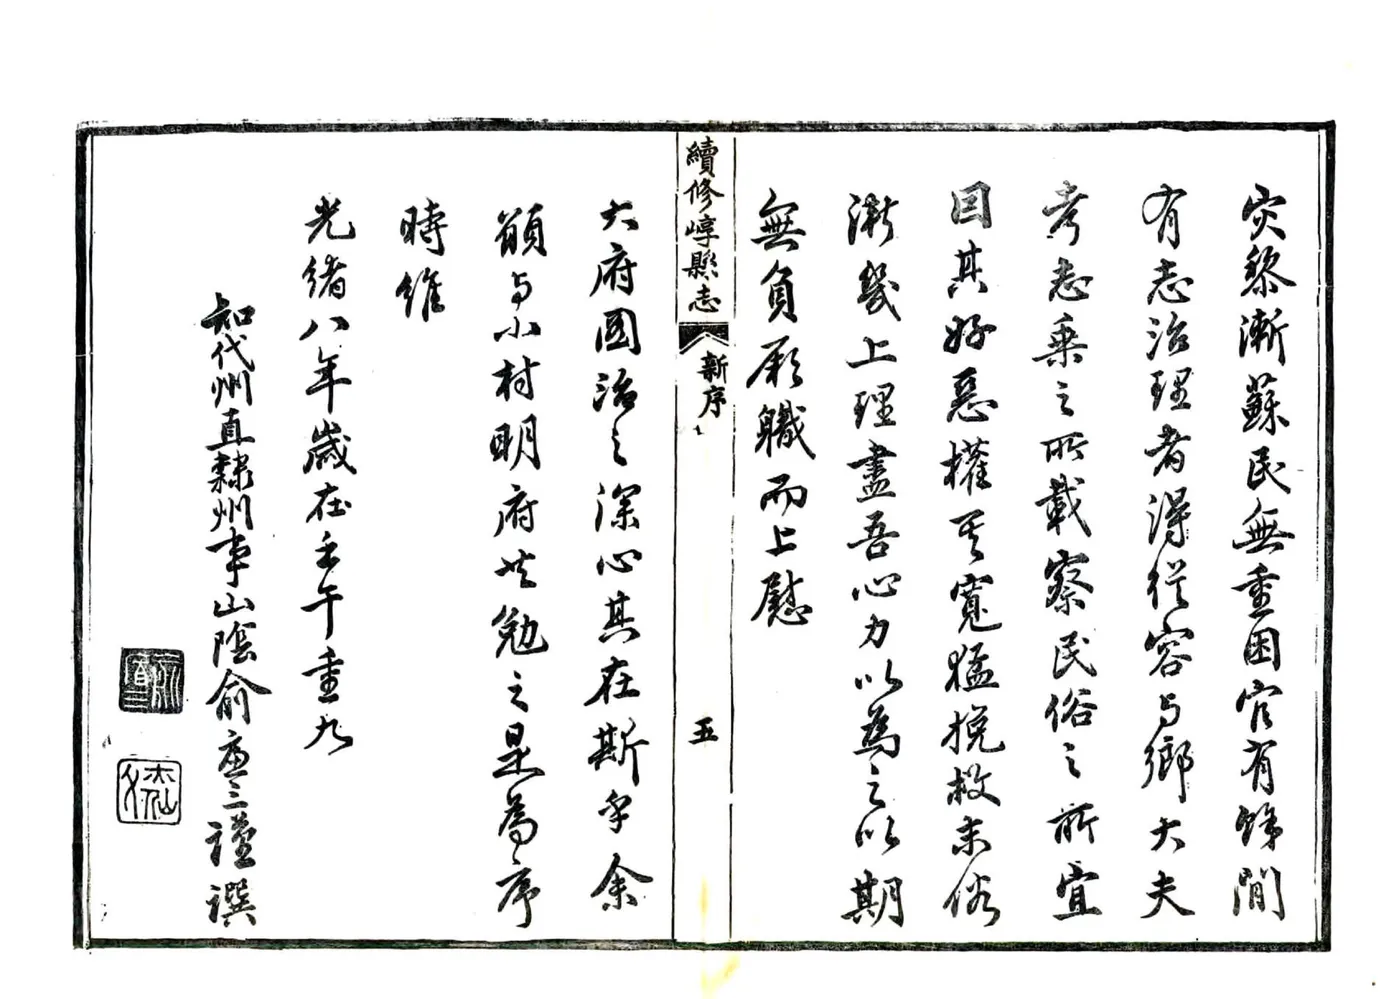 災黎漸蘇民無重困官有餘閒
有志治理者得從容与鄉大夫
考志乘之所載察民俗之所宜
因其好惡權其寬猛挽救末俗
漸幾上理盡吾心力以為之以期
無負厥職而上慰
續修崞縣志
新序
五
大府圖治之深心其在斯乎余
願与小村明府共勉之是為序
時維
光緒八年歲在壬午重九
知代州直隸州事山陰俞廉三謹譔